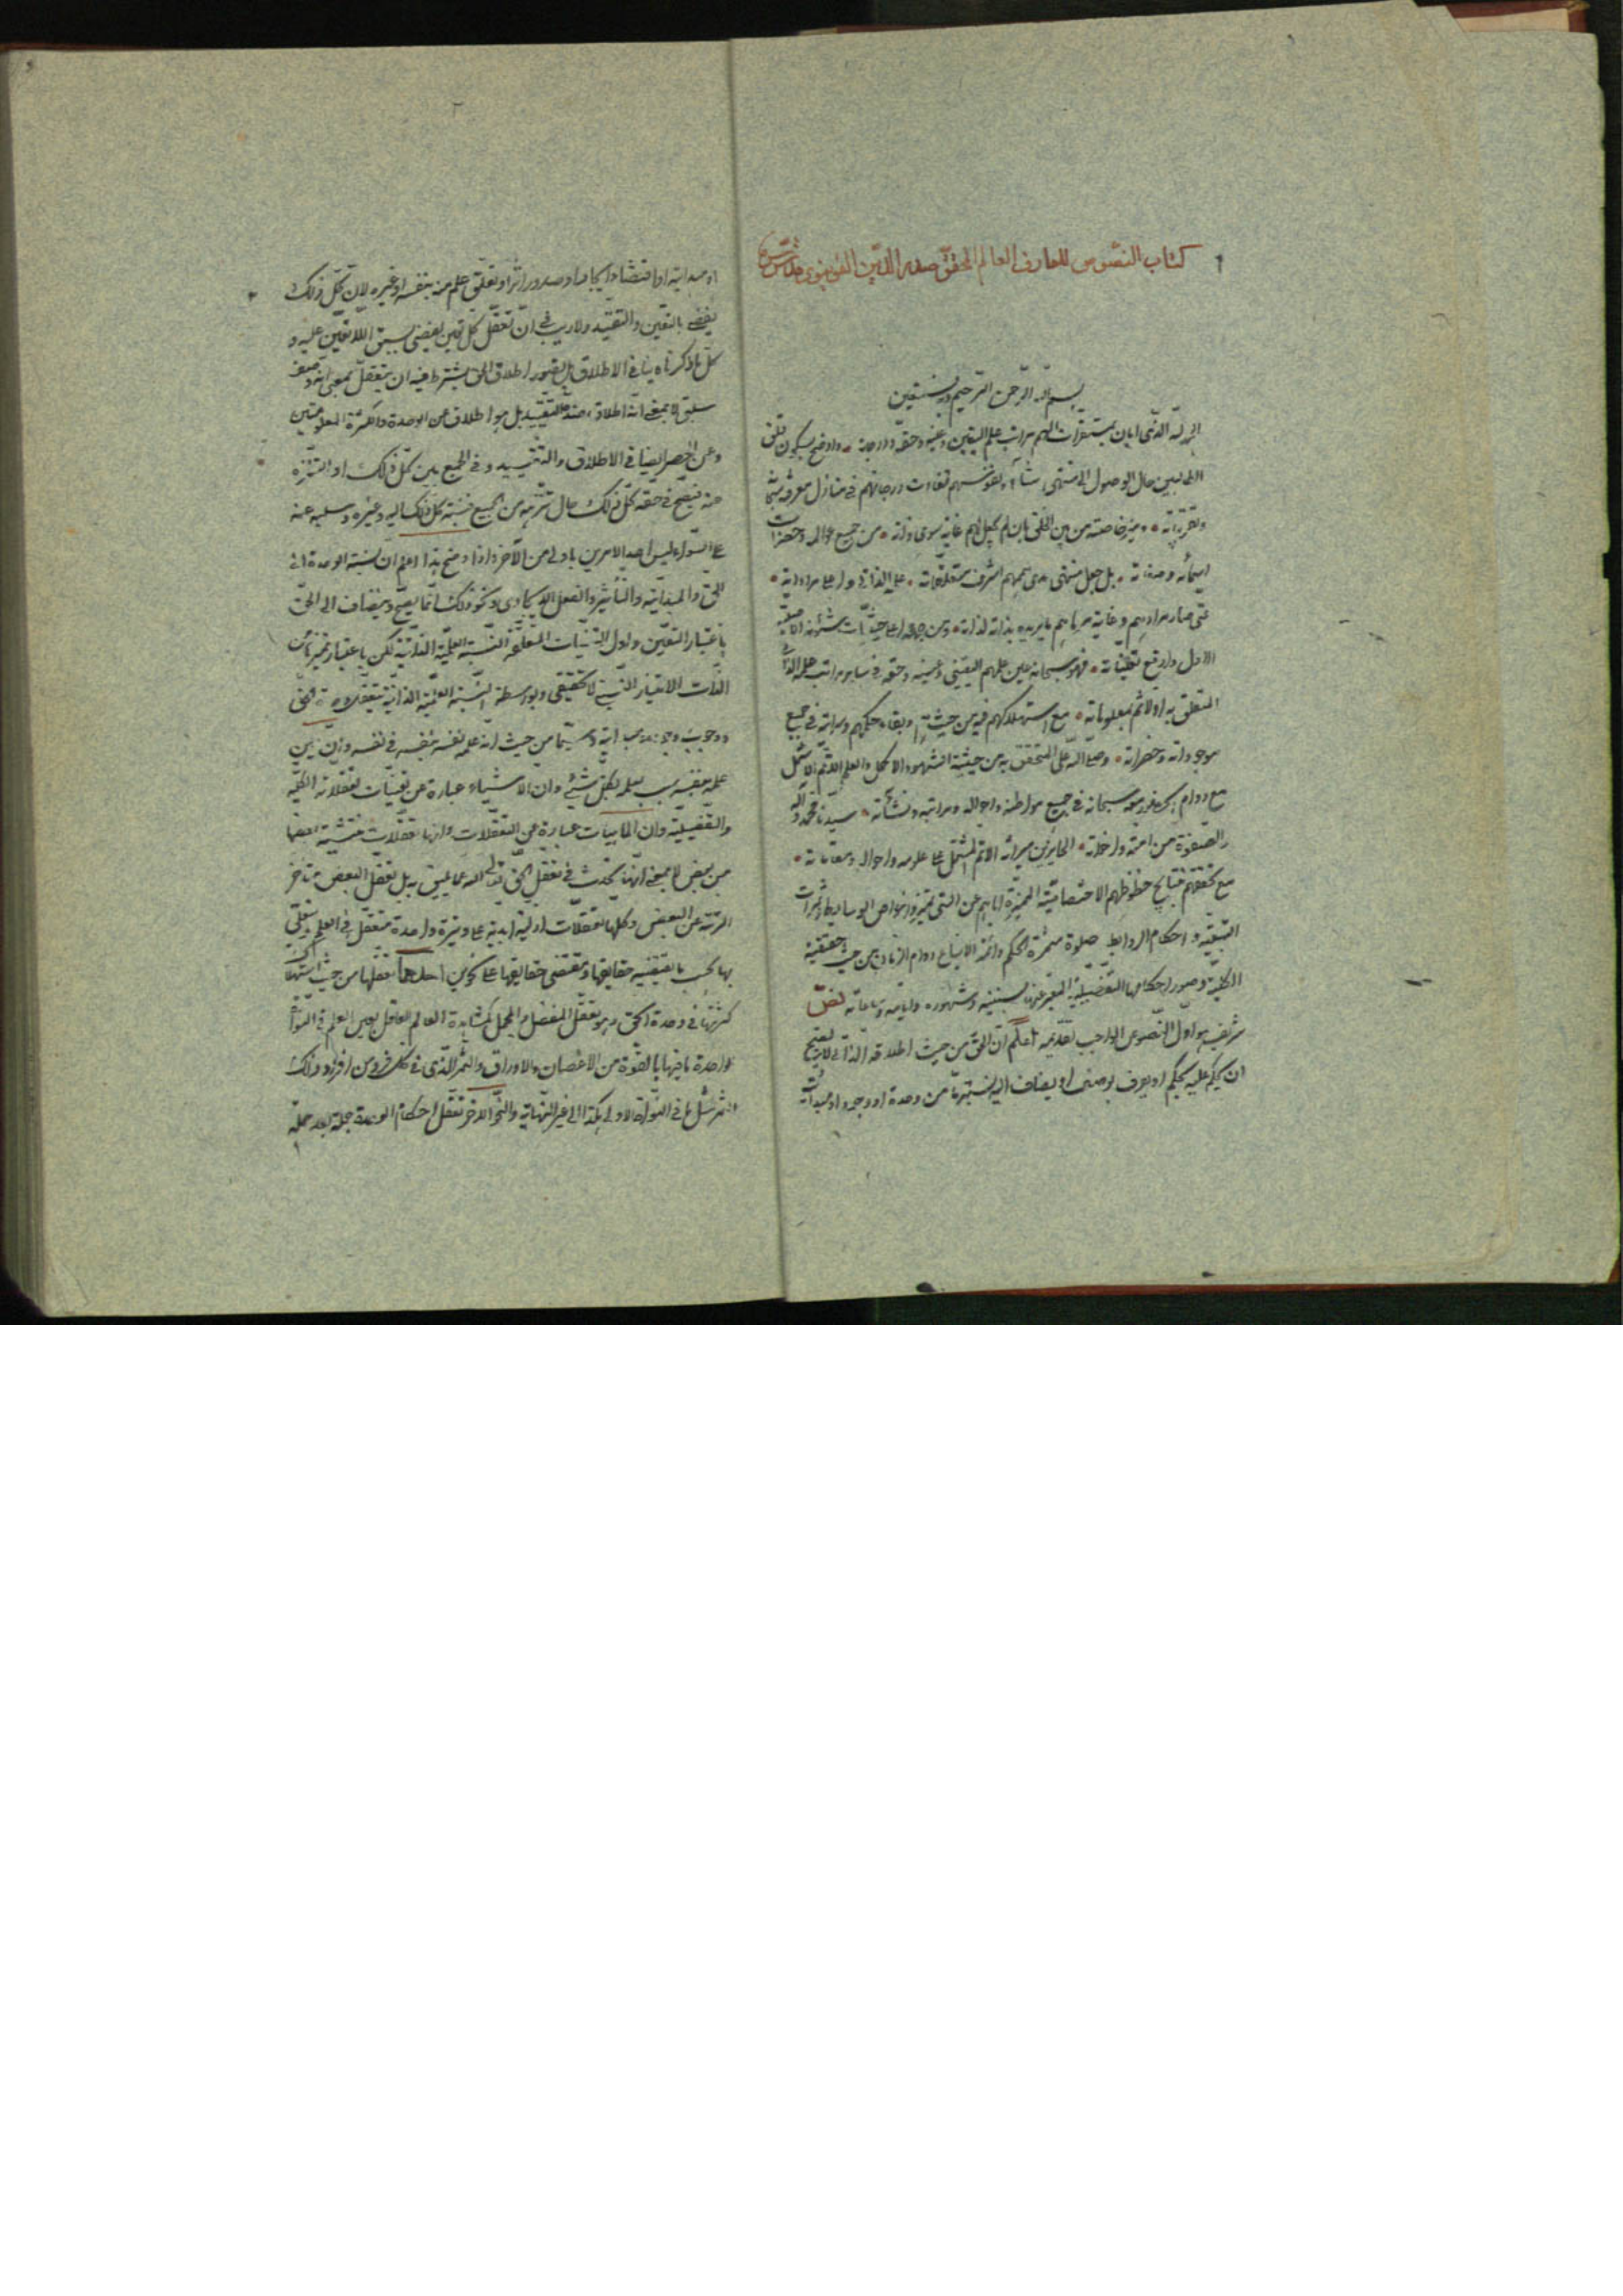 كتاب النصوص للعارف العالم المحقق صدر الدين القونوي قدس سره
بسم الله الرحمن الرحيم وبه نستعين
الحمد لله الذي ابان بمستقرات الهمم مراتب علم اليقين وعينه وحقه ودرجاته واوضح بسكون قلق
الطالبين حال الوصول الى منتهى ونفوسهم تفاوت درجاتهم في منازل معرفة
وميز خاصته من بين الخلق بان لم يجعل لهم غاية سوى ذاته من جميع عوالمه وحضرات
اسمائه وصفاته بل جعل منتهى مدى هممهم اشرف متعلقات علمه الذاتي واعلى مراداته
حتى صار مرادهم وغاية مرماهم ما يريده بذاته لذاته ومن جهة اعلى حيثيات شئونه الاصلية
الاول وارفع تعيناته فهو سبحانه عين علمهم اليقيني وعينه وحقه في سائر مراتب علمه الذاتي
المتعلق به اولا ثم بمعلوماته مع استهلاكهم فيه من حيث هم وبقاء حكمهم وسرايته في جميع
موجوداته وحضراته وصلى الله على المتحقق به من حيثية الشهود الاكمل والعلم الاتم الاشمل
مع دوام الحضور معه سبحانه في جميع مواطنه واحواله ومراتبه ونشآته سيدنا محمد وآله
والصفوة من امته واخوانه الحائزين ميراثه الاتم المشتمل على علومه واحواله ومقاماته
مع تحققهم بنتائج حظوظهم الاختصاصية المميزة اياهم عن التي تميزوا بها خواص الوسائط وثمرات
التبعية واحكام الروابط صلوة مستمرة الحكم دائمة الاتباع دوام الزمان من حيث حقيقته
الكلية وصور احكامها التفصيلية المعبر عنها بسنينه وشهوره وايامه وساعاته نص
شريف هو اول النصوص الواجب تقديمه اعلم ان الحق من حيث اطلاقه الذاتي لا يصح
ان يحكم عليه بحكم او يعرف بوصف او يضاف اليه نسبة ما من وحدة او وجوب وجود او مبدائية
او مبدائية او اقتضاء ايجاد او صدور اثر او تعلق علم منه بنفسه او غيره لان كل ذلك
يقضي بالتعين والتقيد ولا ريب في ان تعقل كل تعين يقضي بسبق اللاتعين عليه و
كل ما ذكرناه ينافي الاطلاق بل تصور اطلاق الحق يشترط فيه ان يتعقل بمعنى انه وصف
سلبي لا بمعنى انه اطلاق ضده التقييد بل هو اطلاق عن الوحدة والكثرة المعلومتين
وعن الحصر ايضا في الاطلاق والتقييد وفي الجمع بين كل ذلك او التنزه
عنه فيصح في حقه كل ذلك حال تنزهه عن الجميع فنسبة كل ذلك اليه وغيره وسلبه عنه
على السواء ليس احد الامرين باولى من الآخر واذا وضح هذا اعلم ان نسبة الوحدة الى
الحق والمبدائية والتأثير والفعل الايجادي ونحو ذلك انما يصح ويضاف الى الحق
باعتبار التعين واول التعينات المتعقلة النسبة العلمية الذاتية لكن باعتبار تميزها عن
الذات الامتياز النسبي لا الحقيقي وبواسطة النسبة العلمية الذاتية يتعقل وحدة الحق
ووجوب وجوده ومبدائيته وسيما من حيث ان علمه نفسه بنفسه في نفسه وان عين
علمه بنفسه سبب لعلمه بكل شيء وان الاشياء عبارة عن تعينات تعقلاته الكلية
والتفصيلية وان الماهيات عبارة عن التعقلات وانها تعقلات منتشية بعضها
من بعض لا بمعنى انها تحدث في تعقل الحق تعالى الله عما لا يليق به بل تعقل البعض متأخر
الرتبة عن البعض وكلها تعقلات ازلية ابدية على وتيرة واحدة متعقل في العلم يتعلق
بها بحسب ما تقتضيه حقايقها ومقتضى حقايقها على نحوين احدهما تعقلها من حيث استهلاك
كثرتها في وحدة الحق وهو تعقل المفصل في المجمل كمشاهدة العالم العاقل بعين العلم في النواة
الواحدة ما فيها بالقوة من الاغصان والاوراق والثمر الذي في كل فرد من افراد ذلك
الثمر مثل ما في النواة الاولى هكذا الى غير النهاية والنحو الاخر تعقل احكام الوحدة جملة بعد جملة